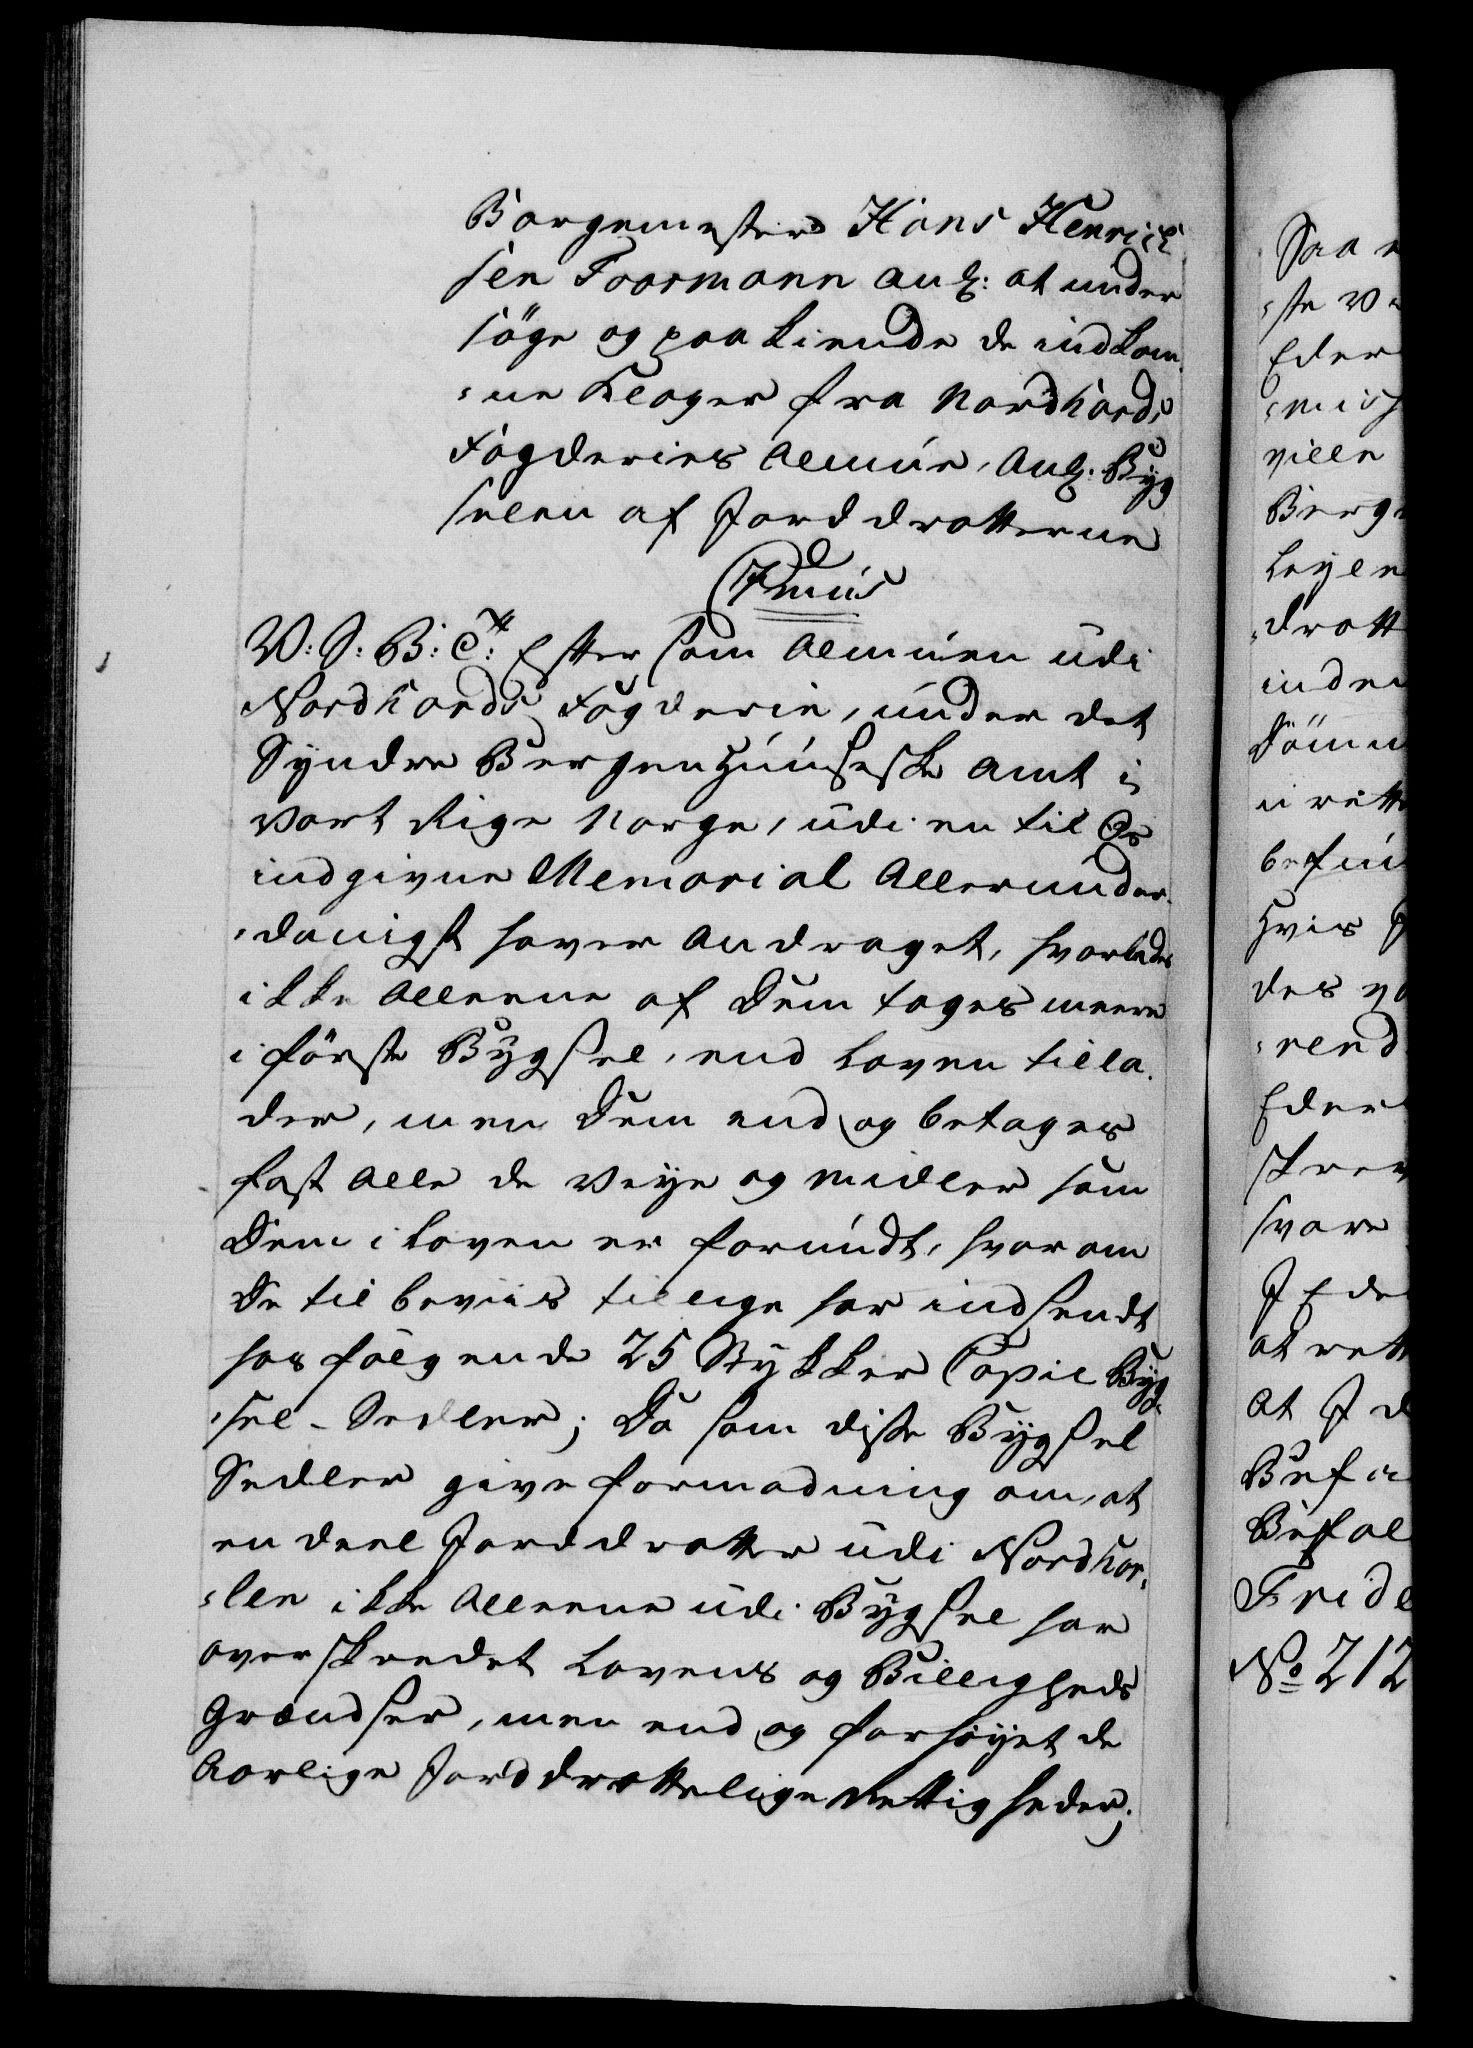 Borgemester Hans Henrich
sen Foormann anl: at under
söge og paa kiende de indkom
=ne Klager fra Nordhords
Fogderies Almúe, Anl: Byg
selen af Jorddrotterne
V: S: B: Efter som Almúen udi
Nordhords Fogderie, únder det
Syndre Bergenhúúsiske Amt i
Vort Rige Norge, udi en til Os
indgivne Memorial Allerúnder
=danigst haver Andraget, hvorledes
ikke Alleene af Dem tages meere
i förste Bygsel, end Loven tilla
der, men Dem end og betages
fast Alle de Veye og Midler som
Dem i Loven er forúndt, hvorom
De til beviis tillige har indsendt
hos fölgende 25 Stykker Copie Byg
=sel-Sedler; Da som disse Bygsel
Sedler give formodning om, at
en deel Jorddrotter udi Nordhor=
=len ikke Alleene udi Bygsel har
overskredet Lovens og Billigheds
Grændser, men end og forhöyet de
Aarlige Jorddrottelige Rettigheder;
Saa
=ste
Eders
ville
Berge
Leyle
=drott
inden
Dömme
hvis
des
Eders
svare
I Ede
at rett
At I d
Befal
Fride
No 212